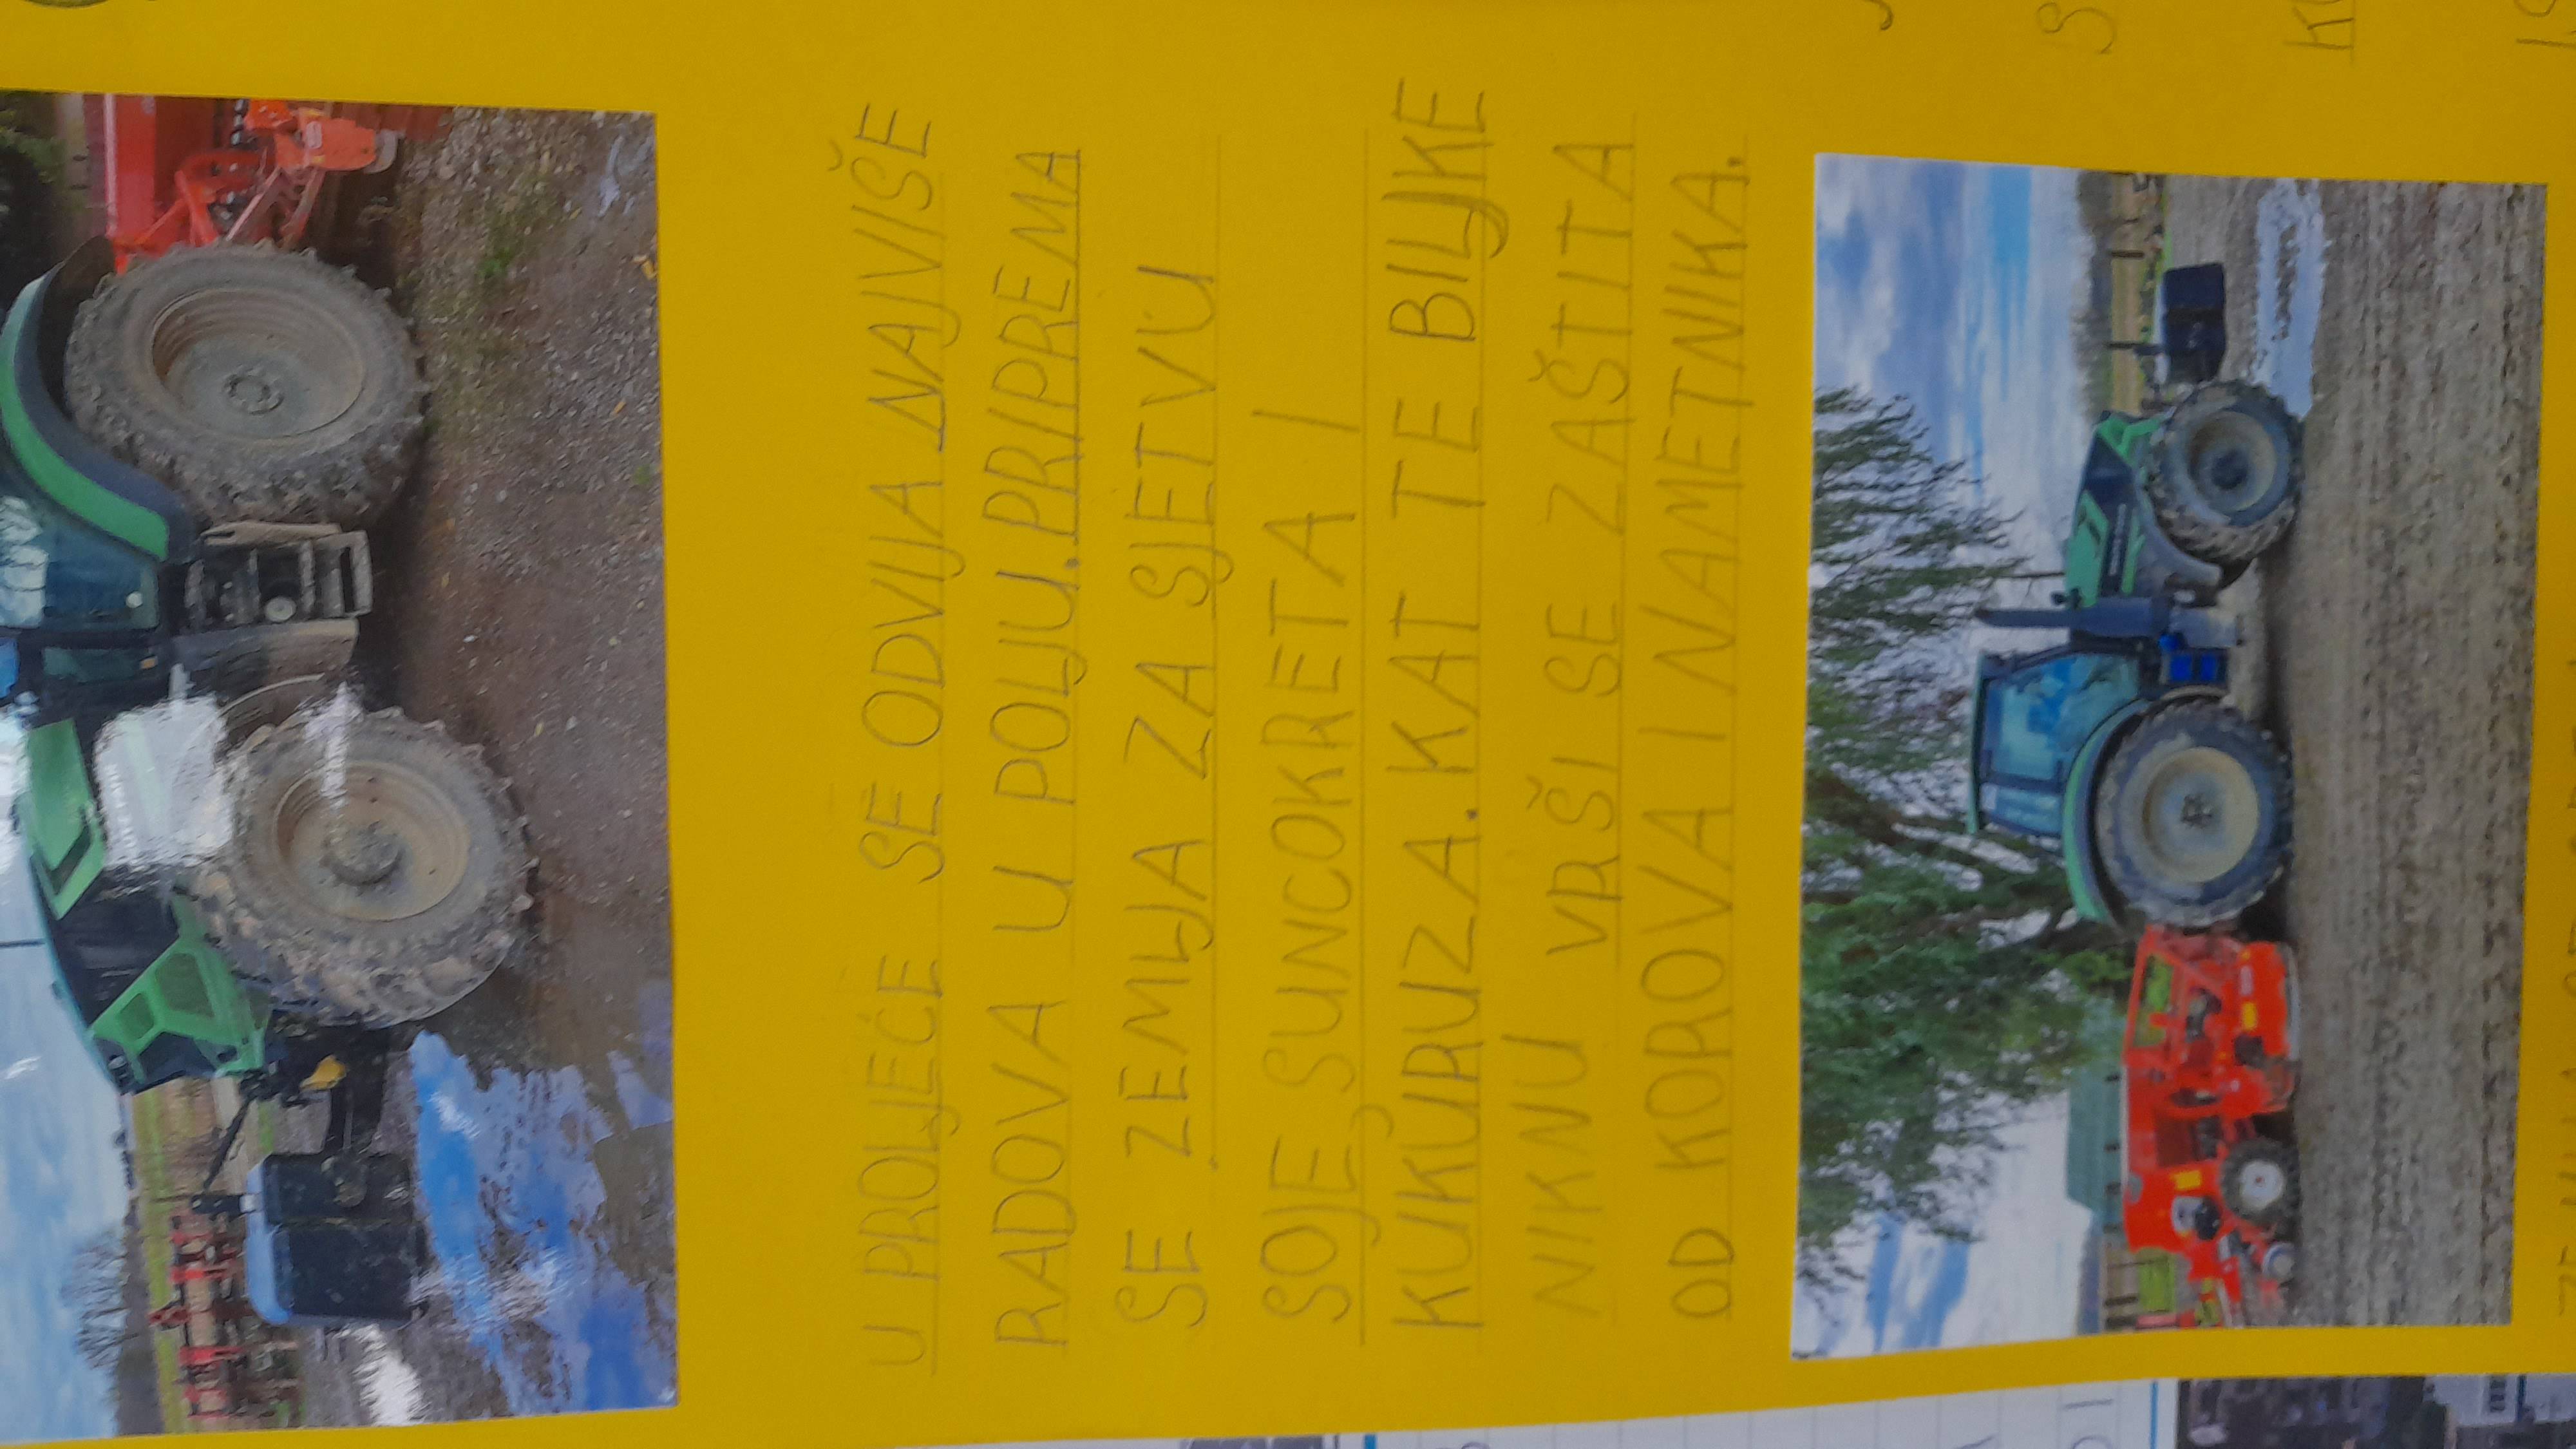 U PROLJEĆE SE ODVIJA NAJVIŠE
RADOVA U POLJU. PRIPREMA
SE ZEMLJA ZA SJETVU
SOJE, SUNCOKRETA I
KUKURUZA. KAT TE BILJKE
NIKNU VRŠI SE ZAŠTITA
OD KOROVA I NAMETNIKA.